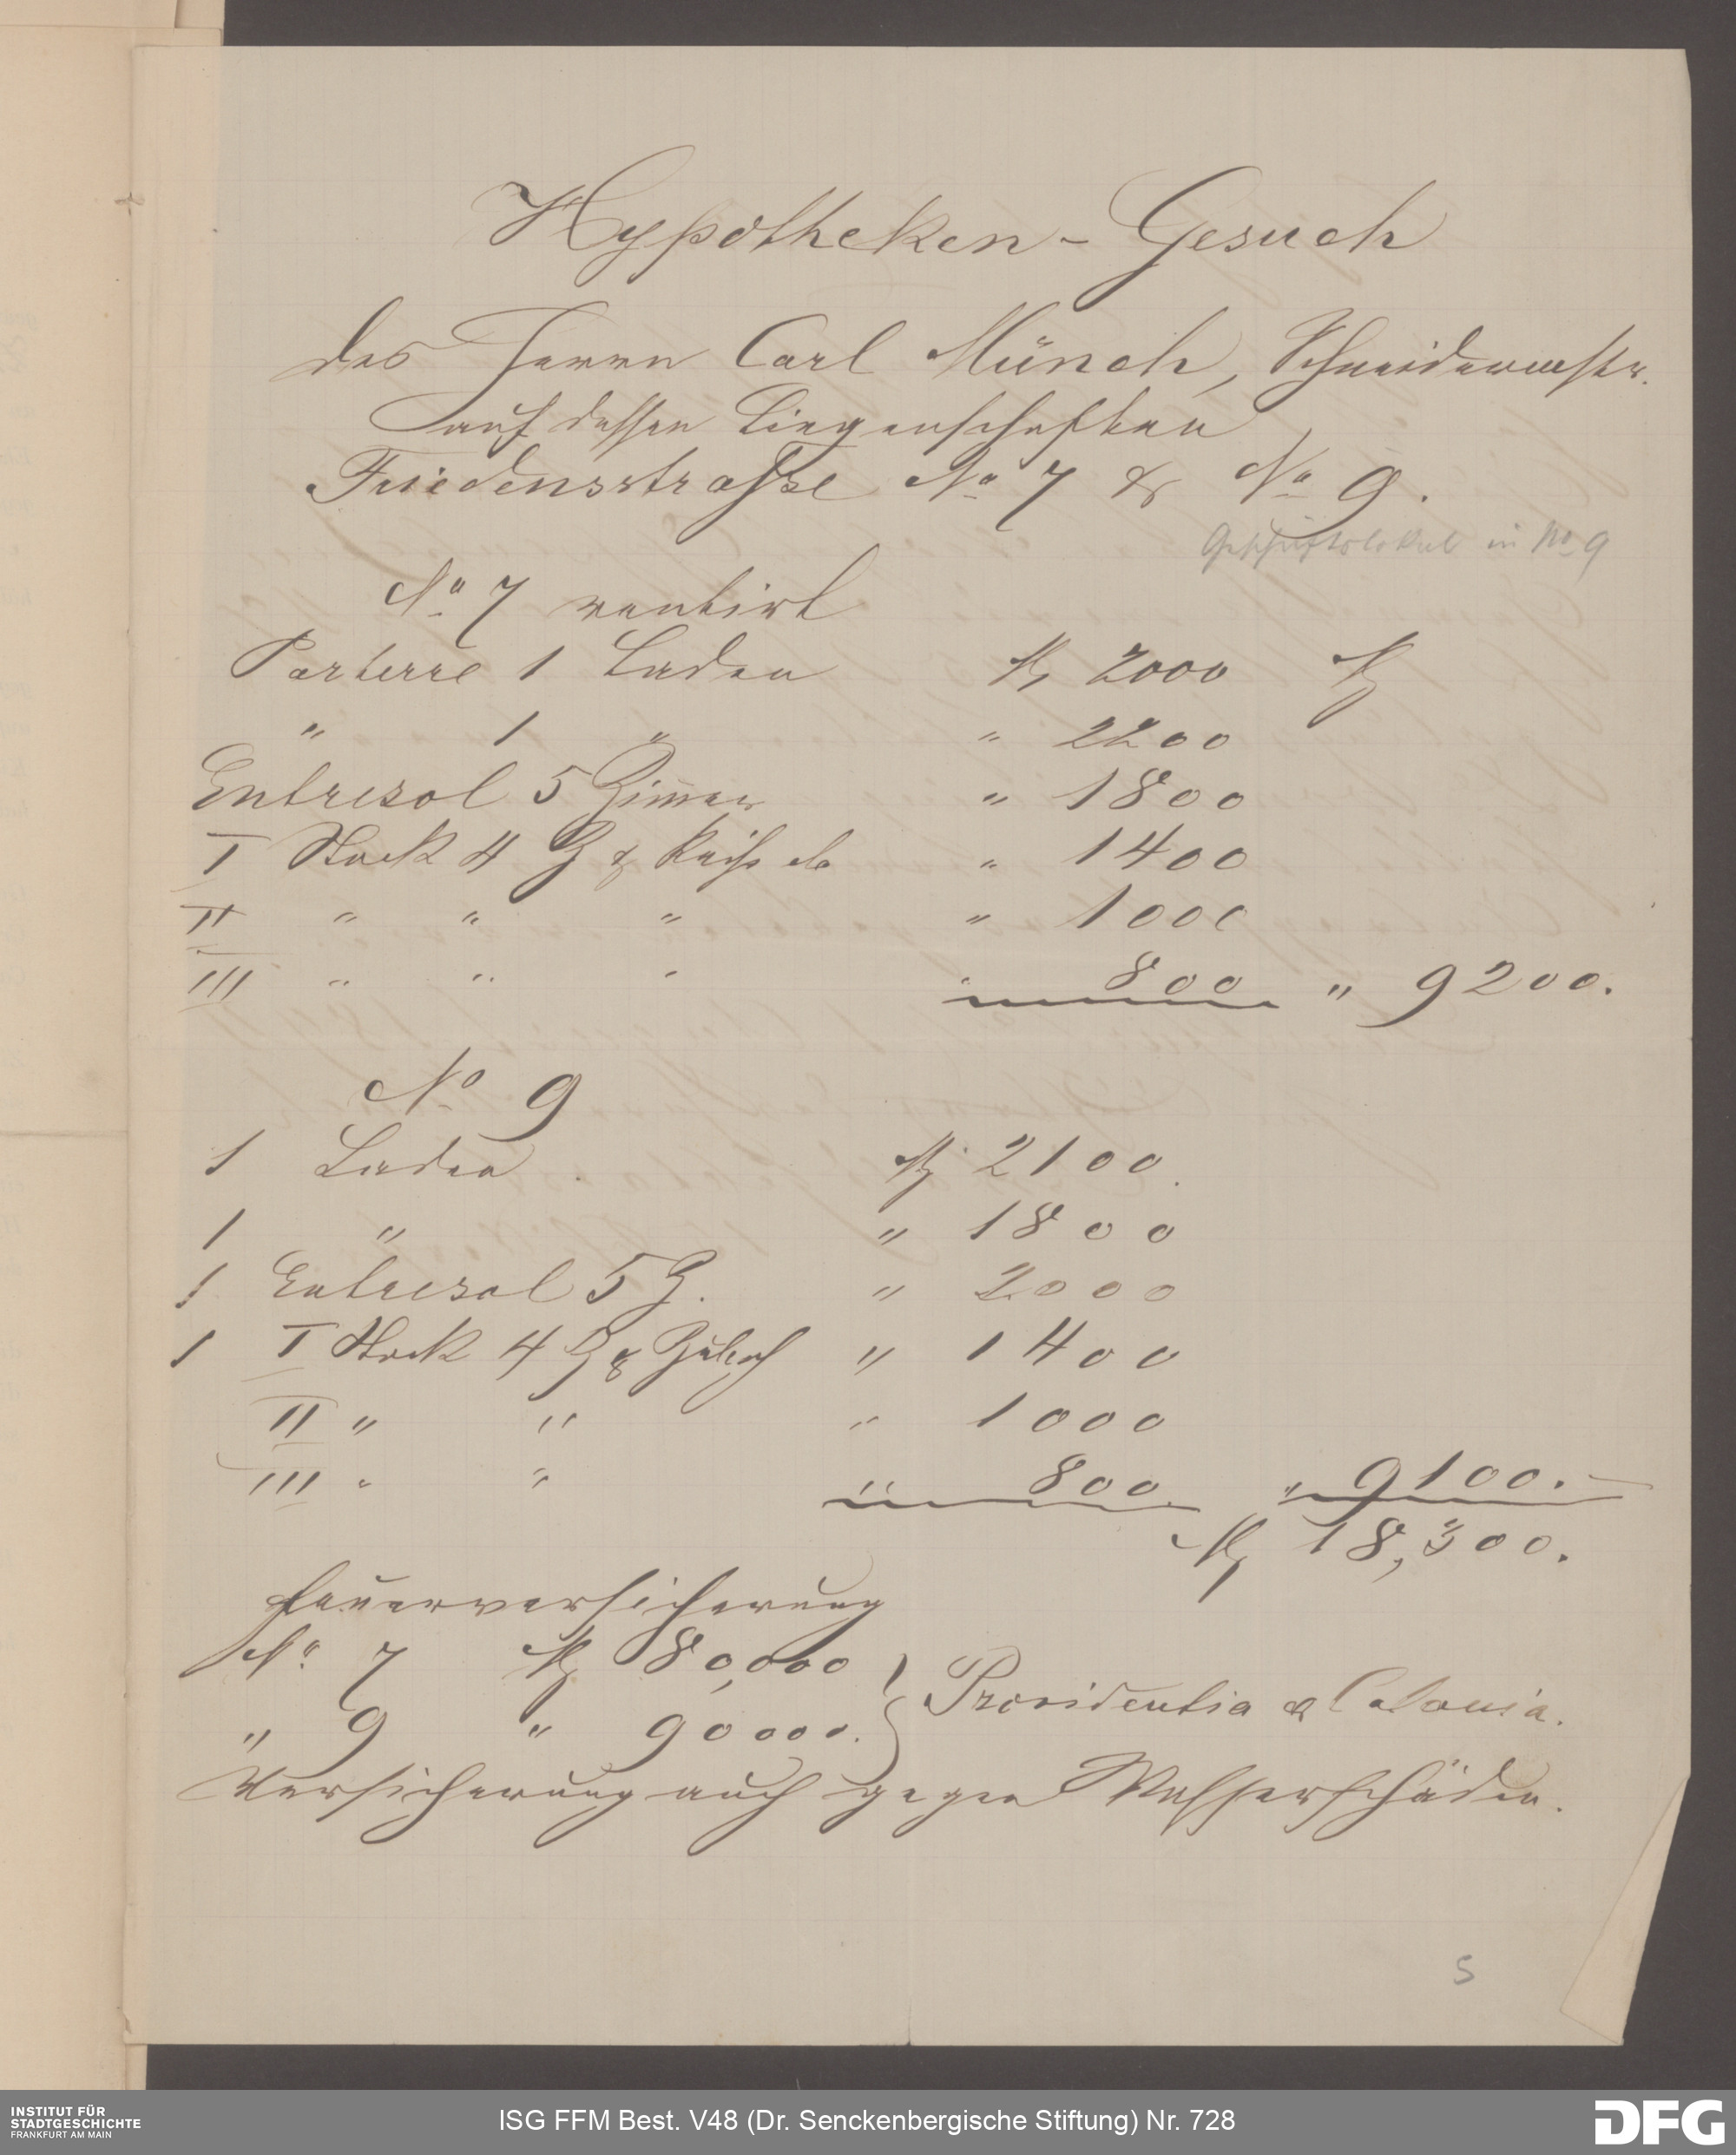 Hypotheken-Gesuch
des Herrn Carl Münch, Schneidermstr.
auf dessen Liegenschaften
Friedensstraße No 7 & No 9.
Geschäftslokal in No 9
No 7 rentirt
Parterre 1 Laden M 2000 M
" 1 " " 2200
Entresol 5 Zimer " 1800
I Stock 4 Z & Küche " 1400
II " " " " 1000
III " " " " 800 " 9200.
No 9
1 Laden M 2100.
1 " " 1800
1 Entresol 5 Z. " 2000
1 I Stock 4 Z & Zubeh " 1400
II " " " 1000
III " " " 800. " 9100.—
M 18,300.
Feuerversicherung
No 7 M 80,000
" 9 " 90000.
Providentia & Colonia.
Versicherung auch gegen Wasserschäden.
5
INSTITUT FÜR
STADTGESCHICHTE
FRANKFURT AM MAIN
ISG FFM Best. V48 (Dr. Senckenbergische Stiftung) Nr. 728
DFG